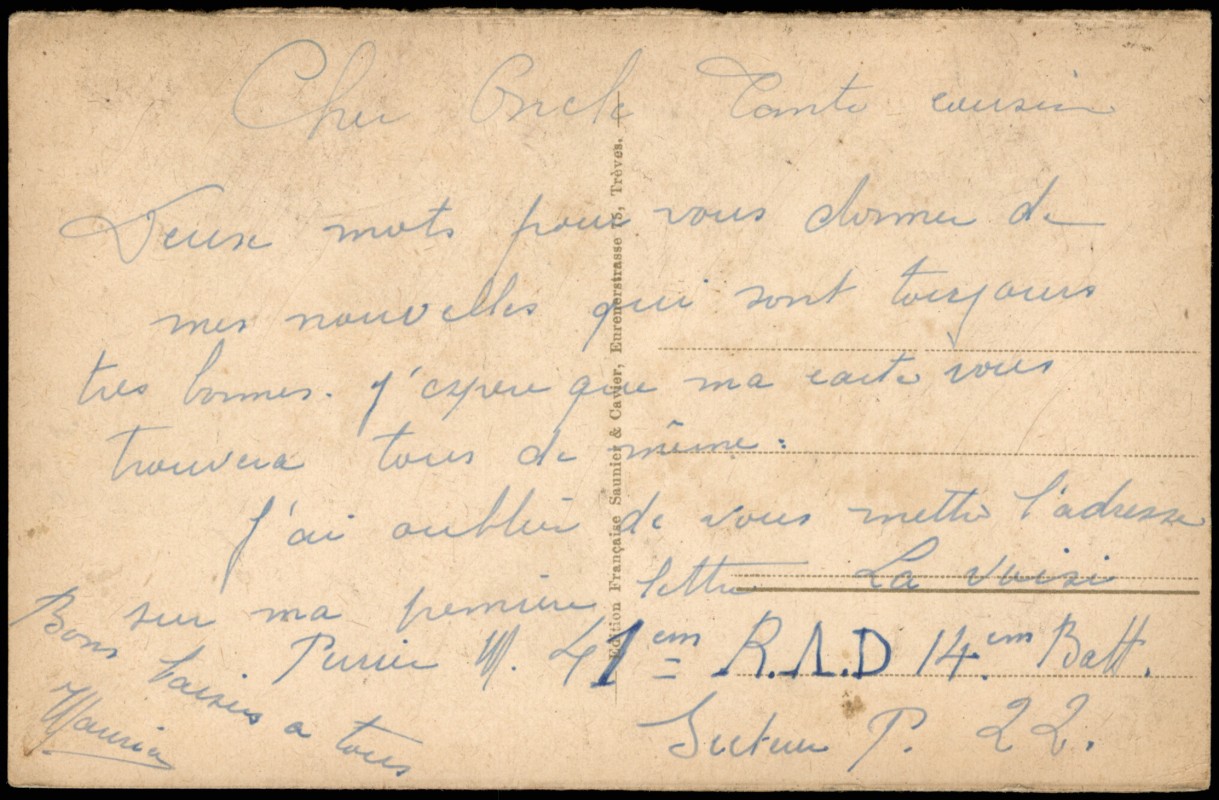 Cher Oncle Tante cousin
Deux mots pour vous donner de
mes nouvelles qui sont toujours
tres bonnes. J'espere que ma carte vous
trouvera tous de même.
J'ai oublier de vous mettre l'adresse
sur ma première lettre La voisi
Perrier M. 41em R.A.D 14.em Batt.
Secteur P. 22.
Bons baisers a tous
Maurice
Edition Française Saunier & Cavier, Eurenerstrasse 75, Trèves.